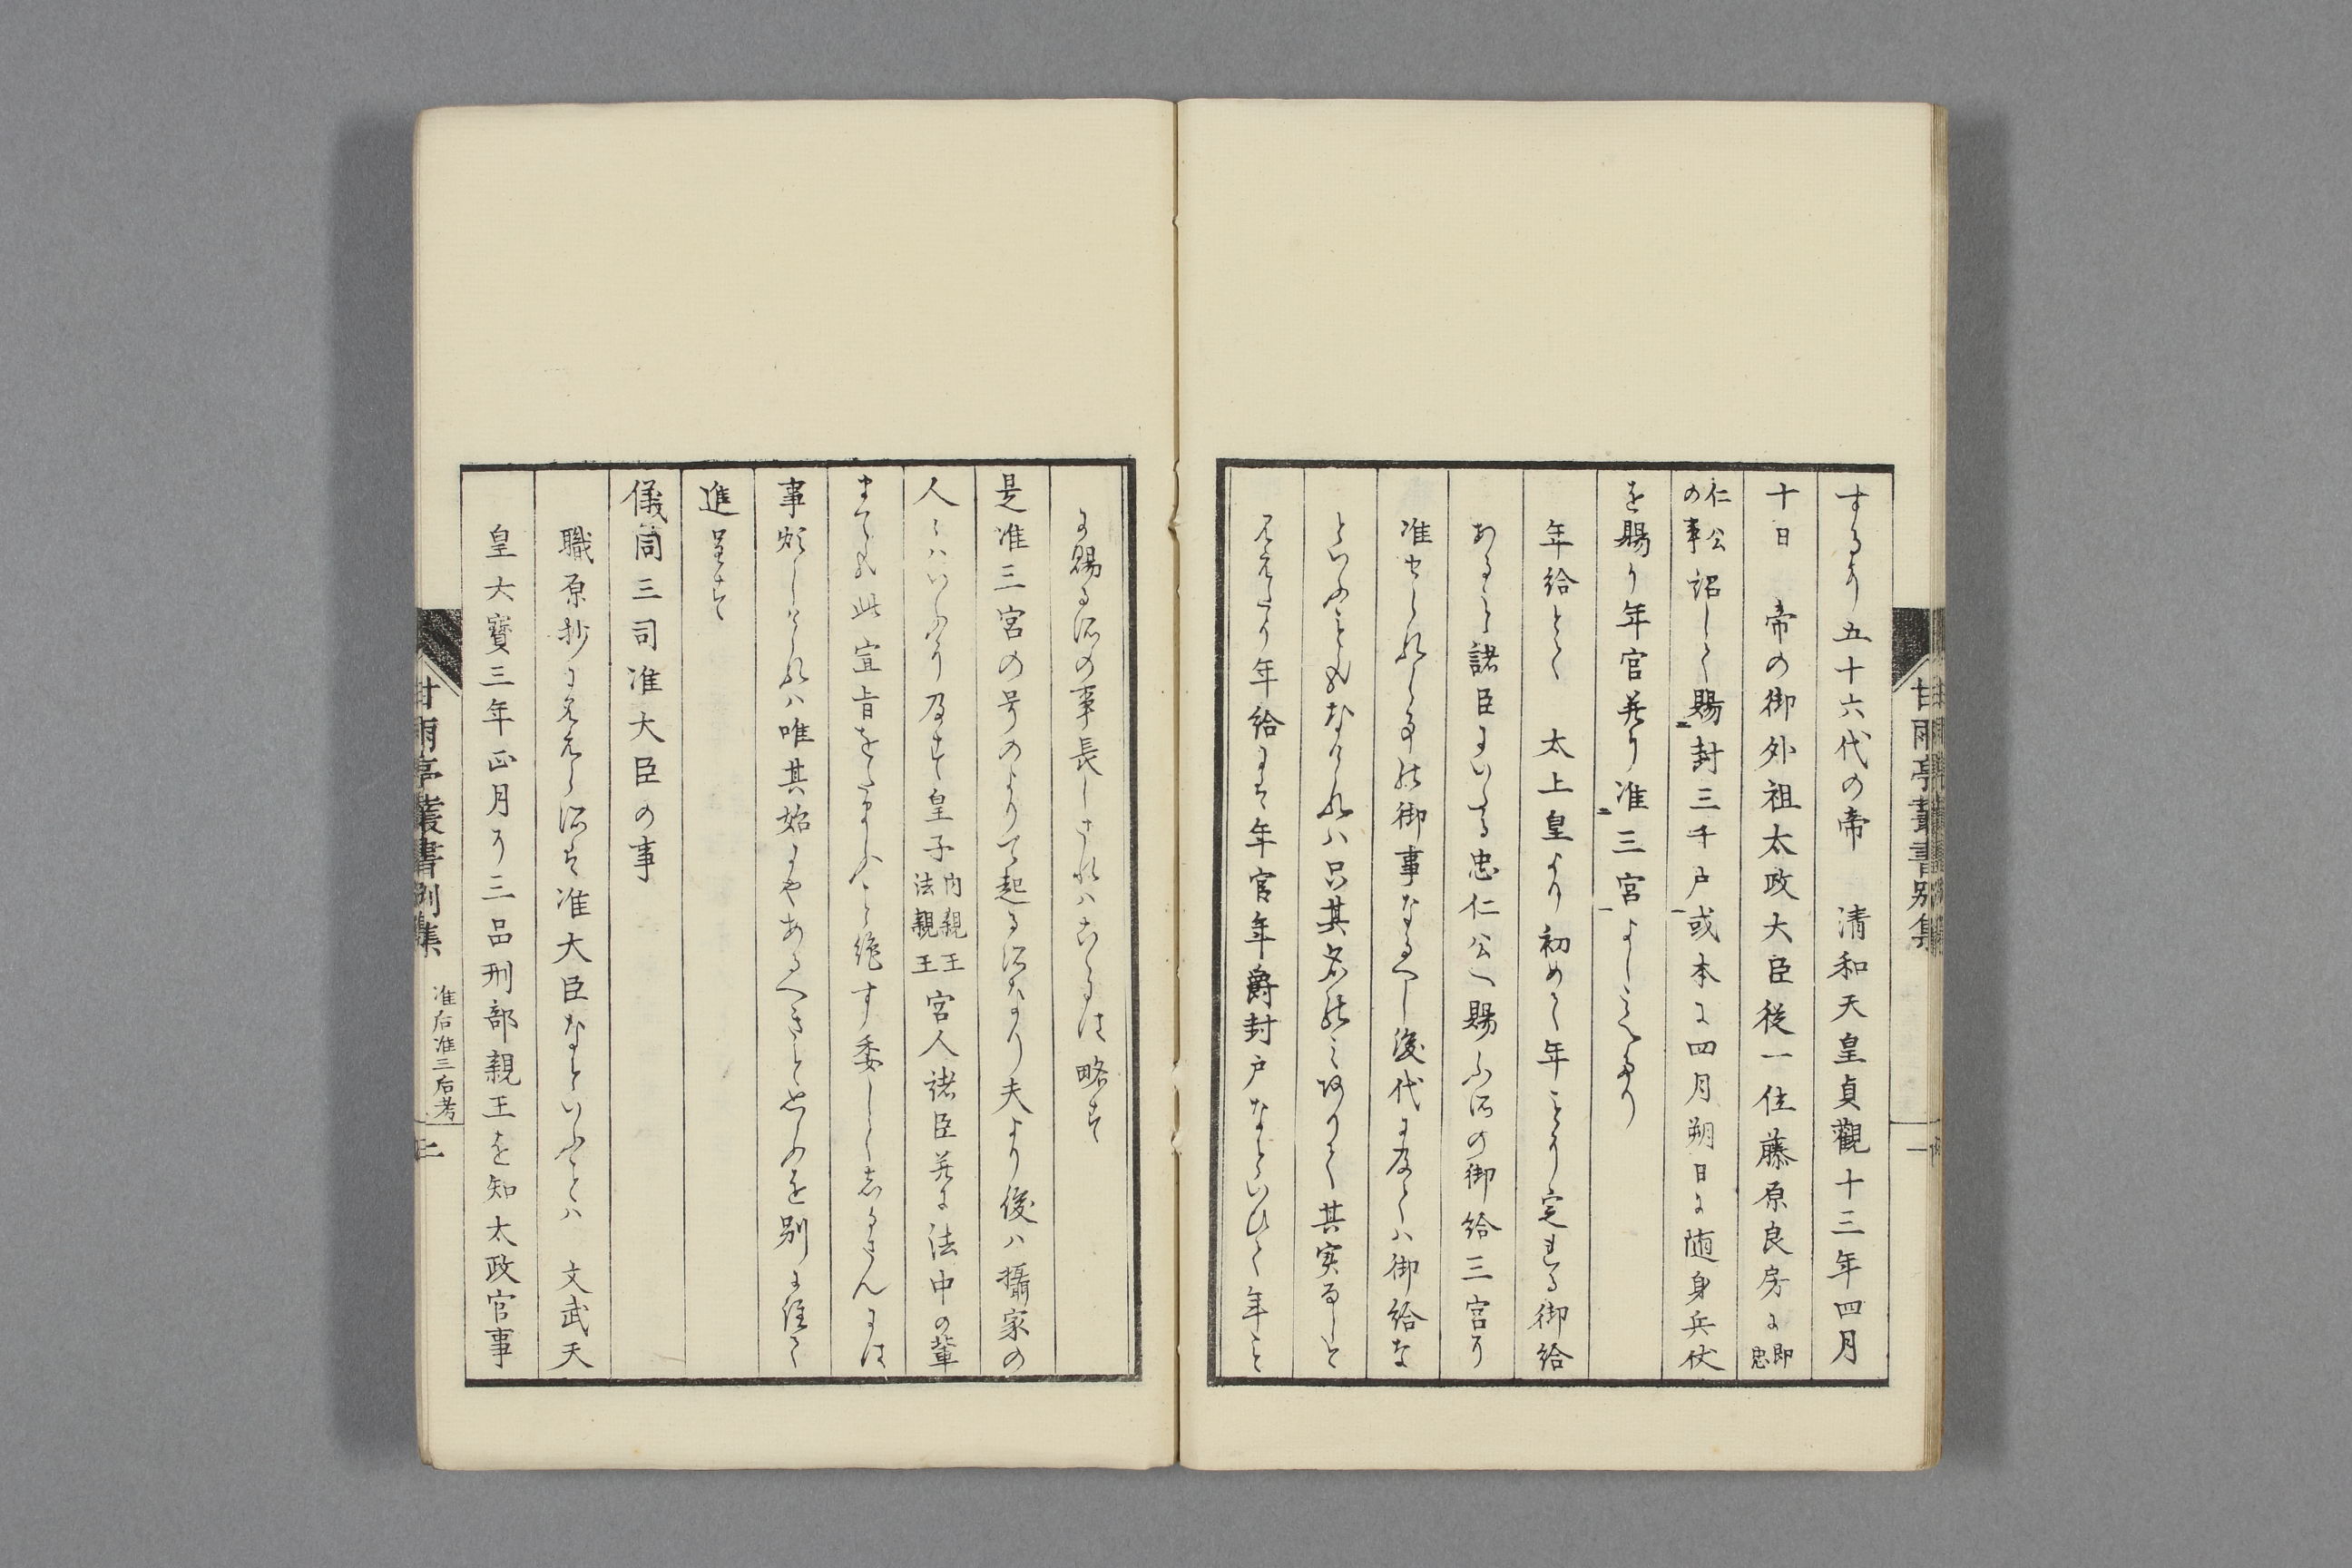 するゝ五十六代の帝　清和天皇貞觀十三年四月
十日　帝の御外祖太政大臣従一位藤原良房に即忠
仁公の事詔して賜封三千戸或本に四月朔日に随身兵仗
を賜り年官并に准三宮よしみへたり
年給とて　太上皇より初めて年ことに定まる御給
あるを諸臣にいたる忠仁公へ賜ふ所の御給三宮に
准せられし事の御事なるへし後代に及ては御給な
といふこともなけれハ只其名のみありて其実なしと
みえたり年給とは年官年爵封戸なといひて年こと
に賜る所の事長しされハこゝには略す
是准三宮の号のよりて起る所なり夫より後ハ攝家の
人々ハいふに及す皇子内親王法親王宮人諸臣并に法中の輩
まても此宣旨を
事煩しけれハ唯其始にやあるへきと
進呈す
儀同三司准大臣の事
職原抄に見えし所は准大臣なといふことハ　文武天
皇大寶三年正月に三品刑部親王を知太政官事
甘雨亭叢書別集
准后准三后考
甘雨亭叢書別集